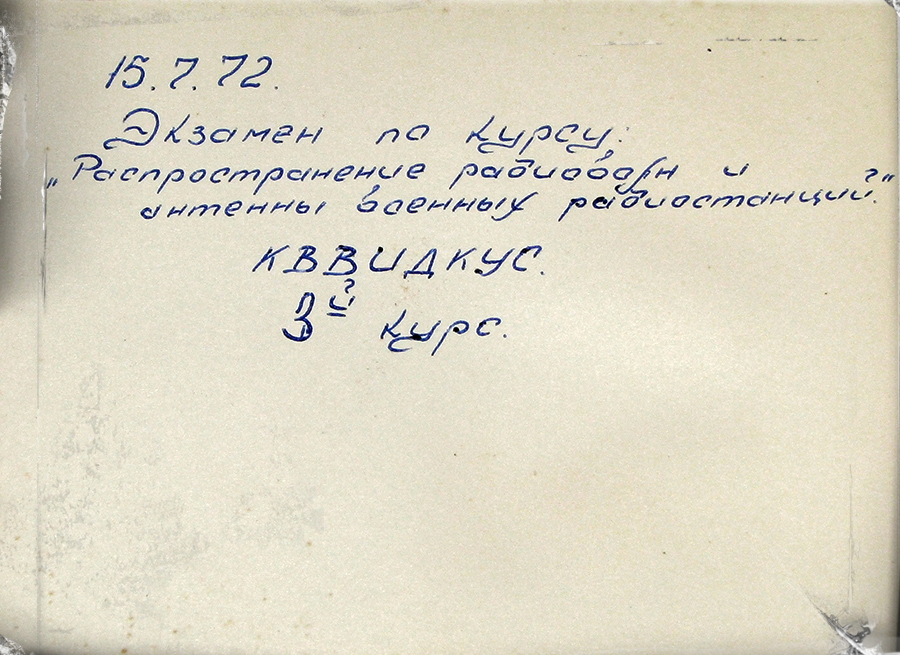 15.7.72.
Экзамен по курсу:
„Распространение радиоволн и
антенны военных радиостанций."
КВВИДКУС.
3й курс.